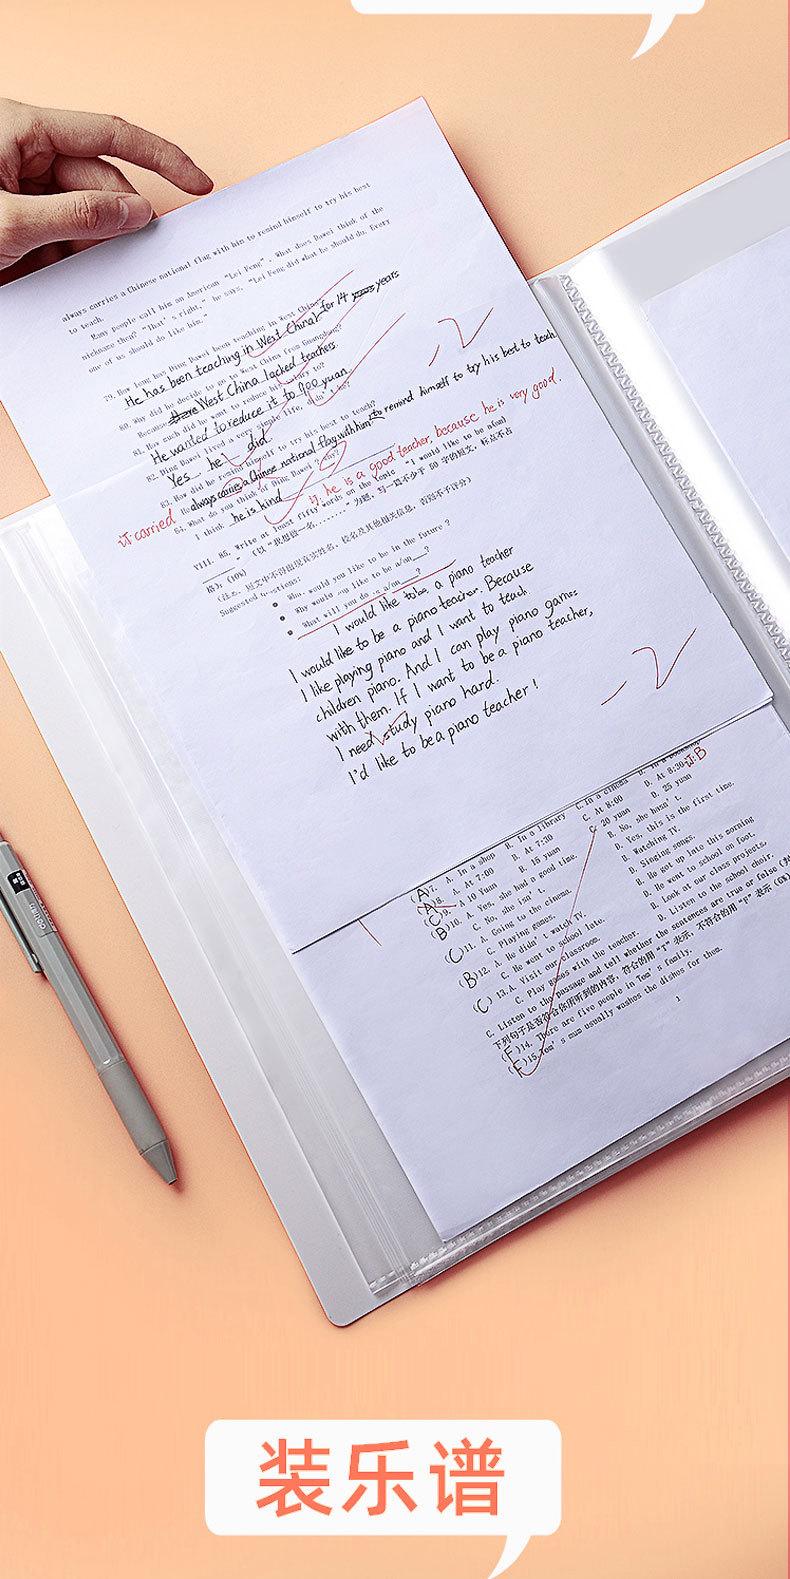 always carries a Chinese national flag with him to remind himself to try his best
to teach.
Many people call him an American "Lei Feng". What does Dawei think of the
nickname then? "That's right," he says, "Lei Feng did what he should do. Every
one of us should do like him."
79. How long has Ding Dawei been teaching in West China?
He has been teaching in West China for 14 years years
80. Why did he decide to go to West China from Guangdong?
Because there West China lacked teachers.
81. How much did he want to reduce his salary to?
He wanted to reduce it to 900 yuan
82. Ding Dawei lived a very simple life, didn't he?
Yes he did.
83. How did he remind himself to try his best to teach?
He always carries a Chinese national flag with him to remind himself to try his best to teach
-2
84. What do you think of Ding Dawei? Why?
I think he is kind
订 carried
订. he is a good teacher, because he is very good.
VIII. 85. Write at least fifty words on the topic "I would like to be a(an)
________". (以"我想做一名........"为题，写一篇不少于 50 字的短文，标点不占
格): (10%)
(注意：短文中不得出现真实姓名、校名及其他相关信息，否则不予评分)
Suggested questions:
● Who would you like to be in the future ?
● Why would you like to be a/an___?
● What will you do as a/an___?
I would like to be a piano teacher
I would like to be a piano teacher. Because
I like playing piano and I want to teach
children piano. And I can play piano games
with them. If I want to be a piano teacher,
I need study piano hard.
I'd like to be a piano teacher !
-2
(A)7. A. In a shop B. In a library C. In a cinema D. In a bookshop
(A)8. A. At 7:00 B. At 7:30 C. At 8:00 D. At 8:30 订:B
(C)9. A. 10 Yuan B. 15 yuan C. 20 yuan D. 25 yuan
(B)10. A. Yes, she had a good time. B. No, she hasn't.
C. No, she isn't. D. Yes, this is the first time.
(C)11. A. Going to the cinema. B. Watching TV.
C. Playing games. D. Singing songs.
(B)12. A. He didn't watch TV. B. He got up late this morning
C. He went to school late. D. He went to school on foot.
(C)13. A. Visit our classroom. B. Look at our class projects.
C. Play games with the teacher. D. Listen to the school choir.
C. Listen to the passage and tell whether the sentences are true or false
下列句子是否符合你所听到的内容，符合的用"T"表示，不符合的用"F"表示 (6%)
(F)14. There are five people in Tom's family.
(F)15. Tom's mum usually washes the dishes for them.
1
deli
装乐谱